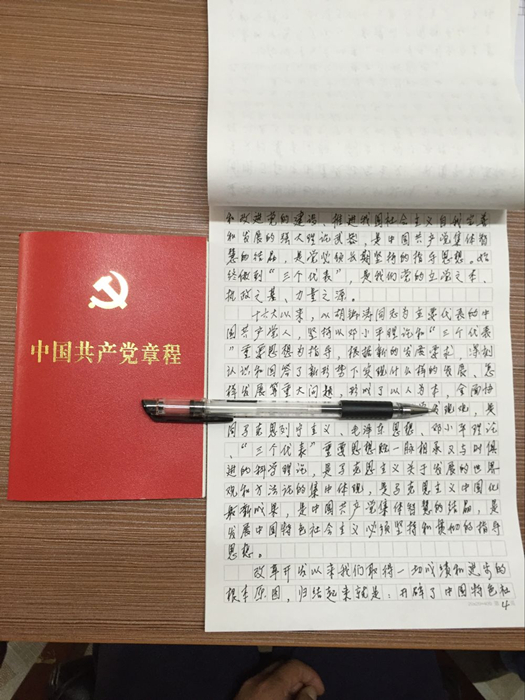 中国共产党章程
和改进党的建设、推进我国社会主义自我完善
和发展的强大理论武器，是中国共产党集体智
慧的结晶，是党必须长期坚持的指导思想。始
终做到“三个代表”，是我们党的立党之本、
执政之基、力量之源。
十六大以来，以胡锦涛同志为主要代表的中
国共产党人，坚持以邓小平理论和“三个代表
”重要思想为指导，根据新的发展要求，深刻
认识和回答了新形势下实现什么样的发展、怎
样发展等重大问题，形成了以人为本、全面协
发展观，是
同马克思列宁主义、毛泽东思想、邓小平理论
、“三个代表”重要思想既一脉相承又与时俱
进的科学理论，是马克思主义关于发展的世界
观和方法论的集中体现，是马克思主义中国化
最新成果，是中国共产党集体智慧的结晶，是
发展中国特色社会主义必须坚持和贯彻的指导
思想。
改革开放以来我们取得一切成绩和进步的
根本原因，归结起来就是：开辟了中国特色社
4